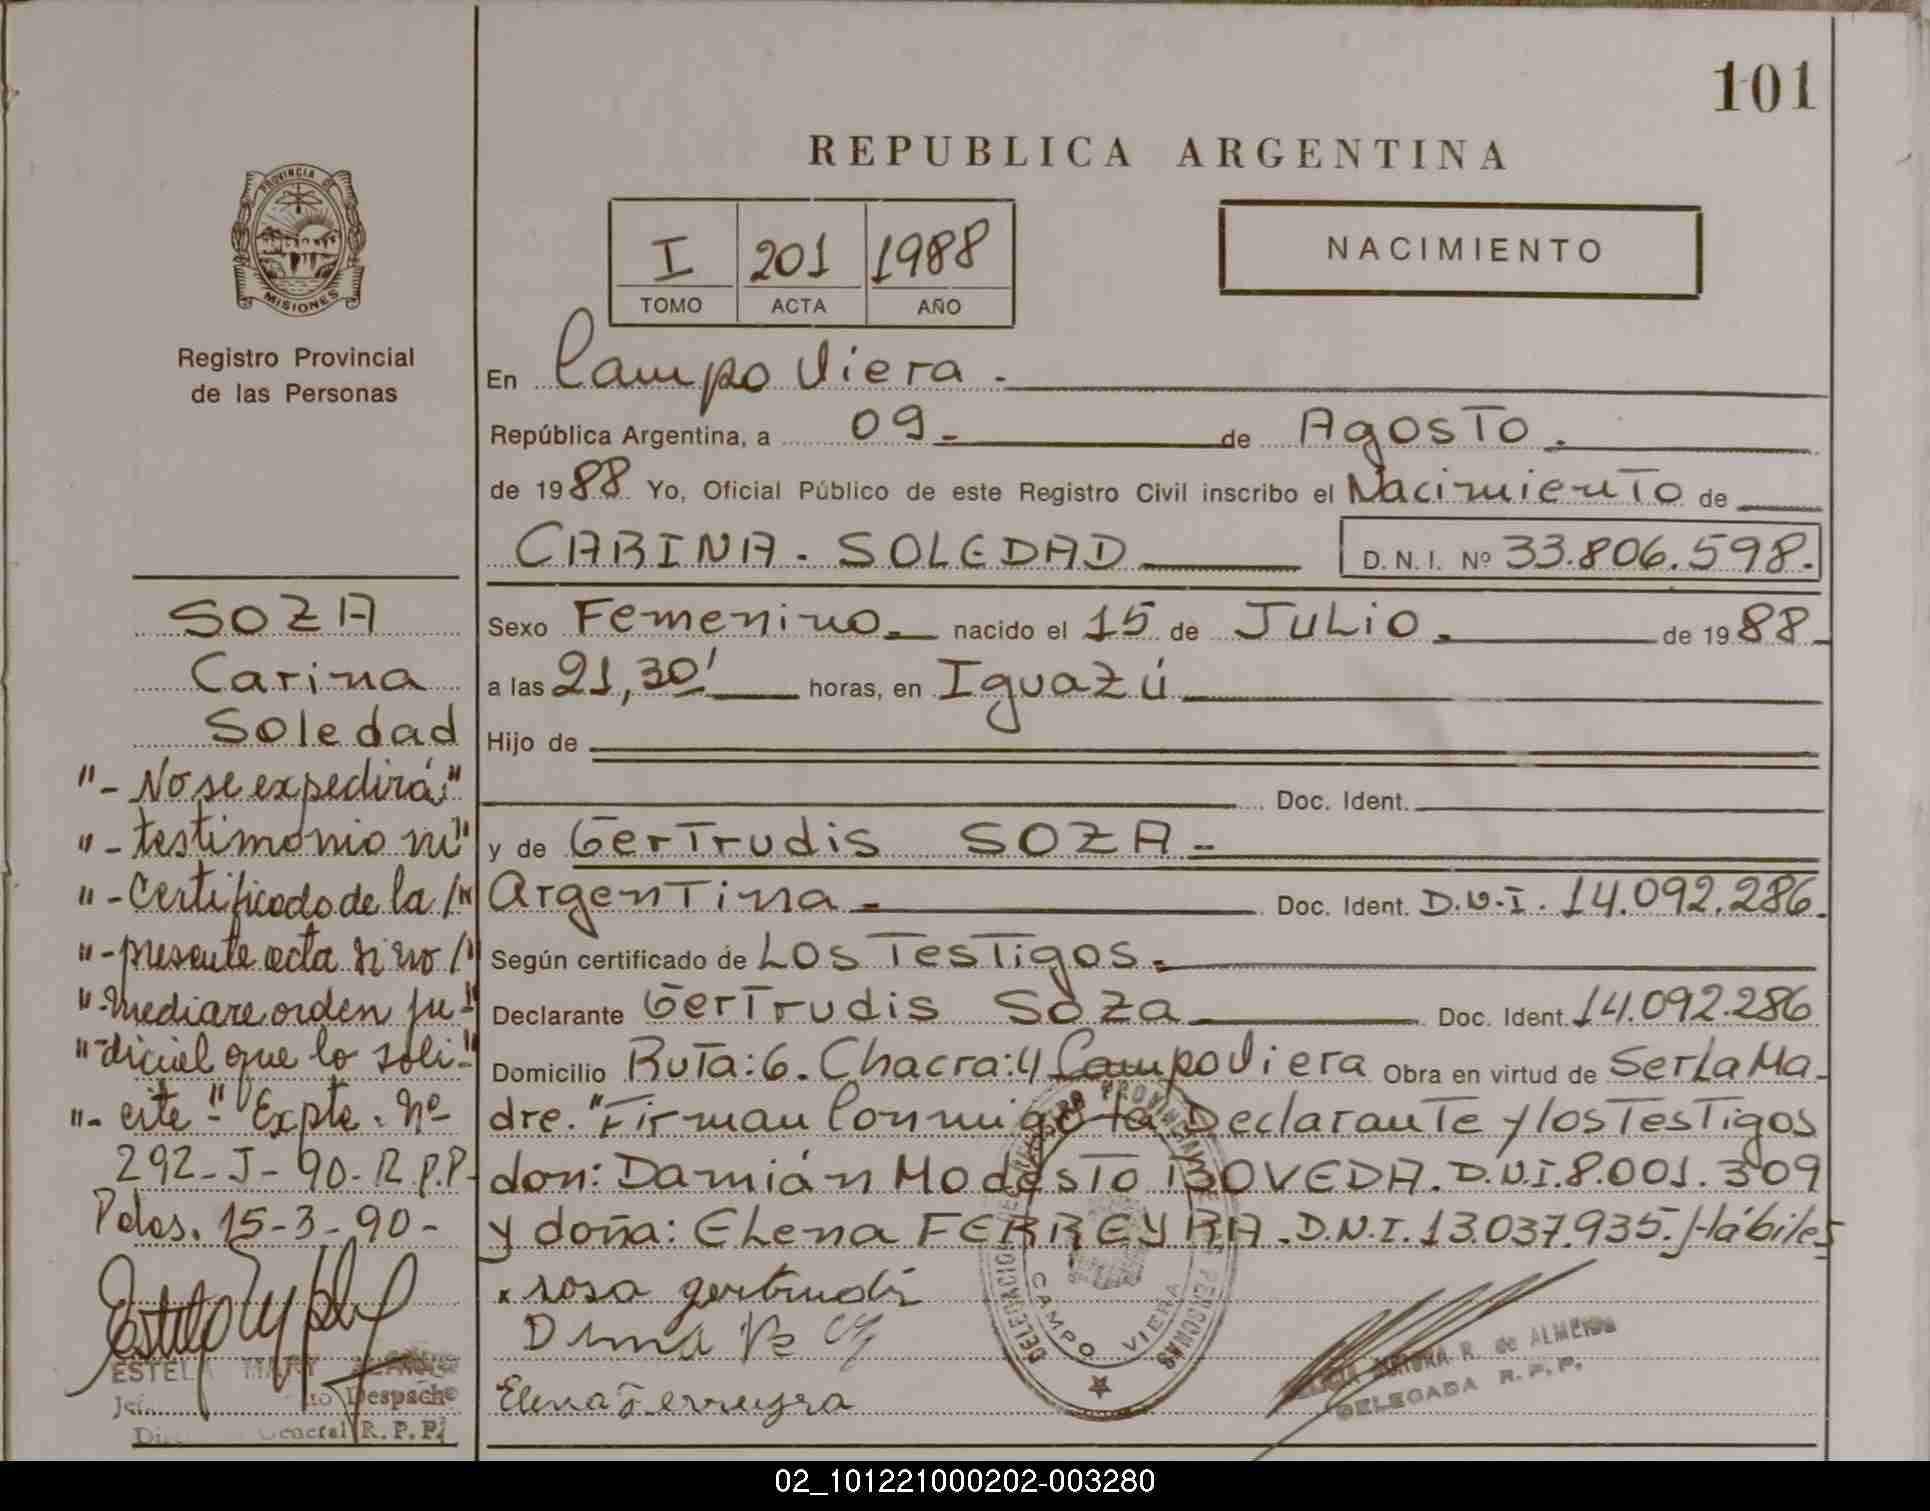 101
REPUBLICA ARGENTINA
PROVINCIA DE
MISIONES
Registro Provincial
de las Personas
I 201 1988
TOMO ACTA AÑO
NACIMIENTO
En Campo Viera.
República Argentina, a 09 de Agosto.
de 1988 Yo, Oficial Público de este Registro Civil inscribo el Nacimiento de
CARINA - SOLEDAD D. N. I. Nº 33.806.598.
Sexo Femenino. nacido el 15 de Julio. de 1988
a las 21,30' horas, en Iguazú
Hijo de
Doc. Ident.
y de Gertrudis SOZA -
Argentina - Doc. Ident. D.N.I. 14.092.286.
Según certificado de Los Testigos.
Declarante Gertrudis Soza Doc. Ident. 14.092.286
Domicilio Ruta:6. Chacra:4 Campo Viera Obra en virtud de Ser La Ma-
dre. "Firman Conmigo la Declarante y los Testigos
don: Damián Modesto BOVEDA. D.N.I. 8.001.309
y doña: Elena FERREYRA. D.N.I. 13.037.935. Hábiles
sosa gertrudi
Elena Ferreyra
CAMPO VIERA
R. de ALMEIDA
DELEGADA R. P. P.
SOZA
Carina
Soledad
"- No se expedirá"
"- testimonio ni"
"- Certificado de la /"
"- presente acta si no /"
"- mediare orden ju-"
"- dicial que lo soli-"
"- cite" Expte. Nº
292-J-90-R.P.P.
Pdas. 15-3-90-
ESTELA MARY
Despacho
General R. P. P.
02_101221000202-003280